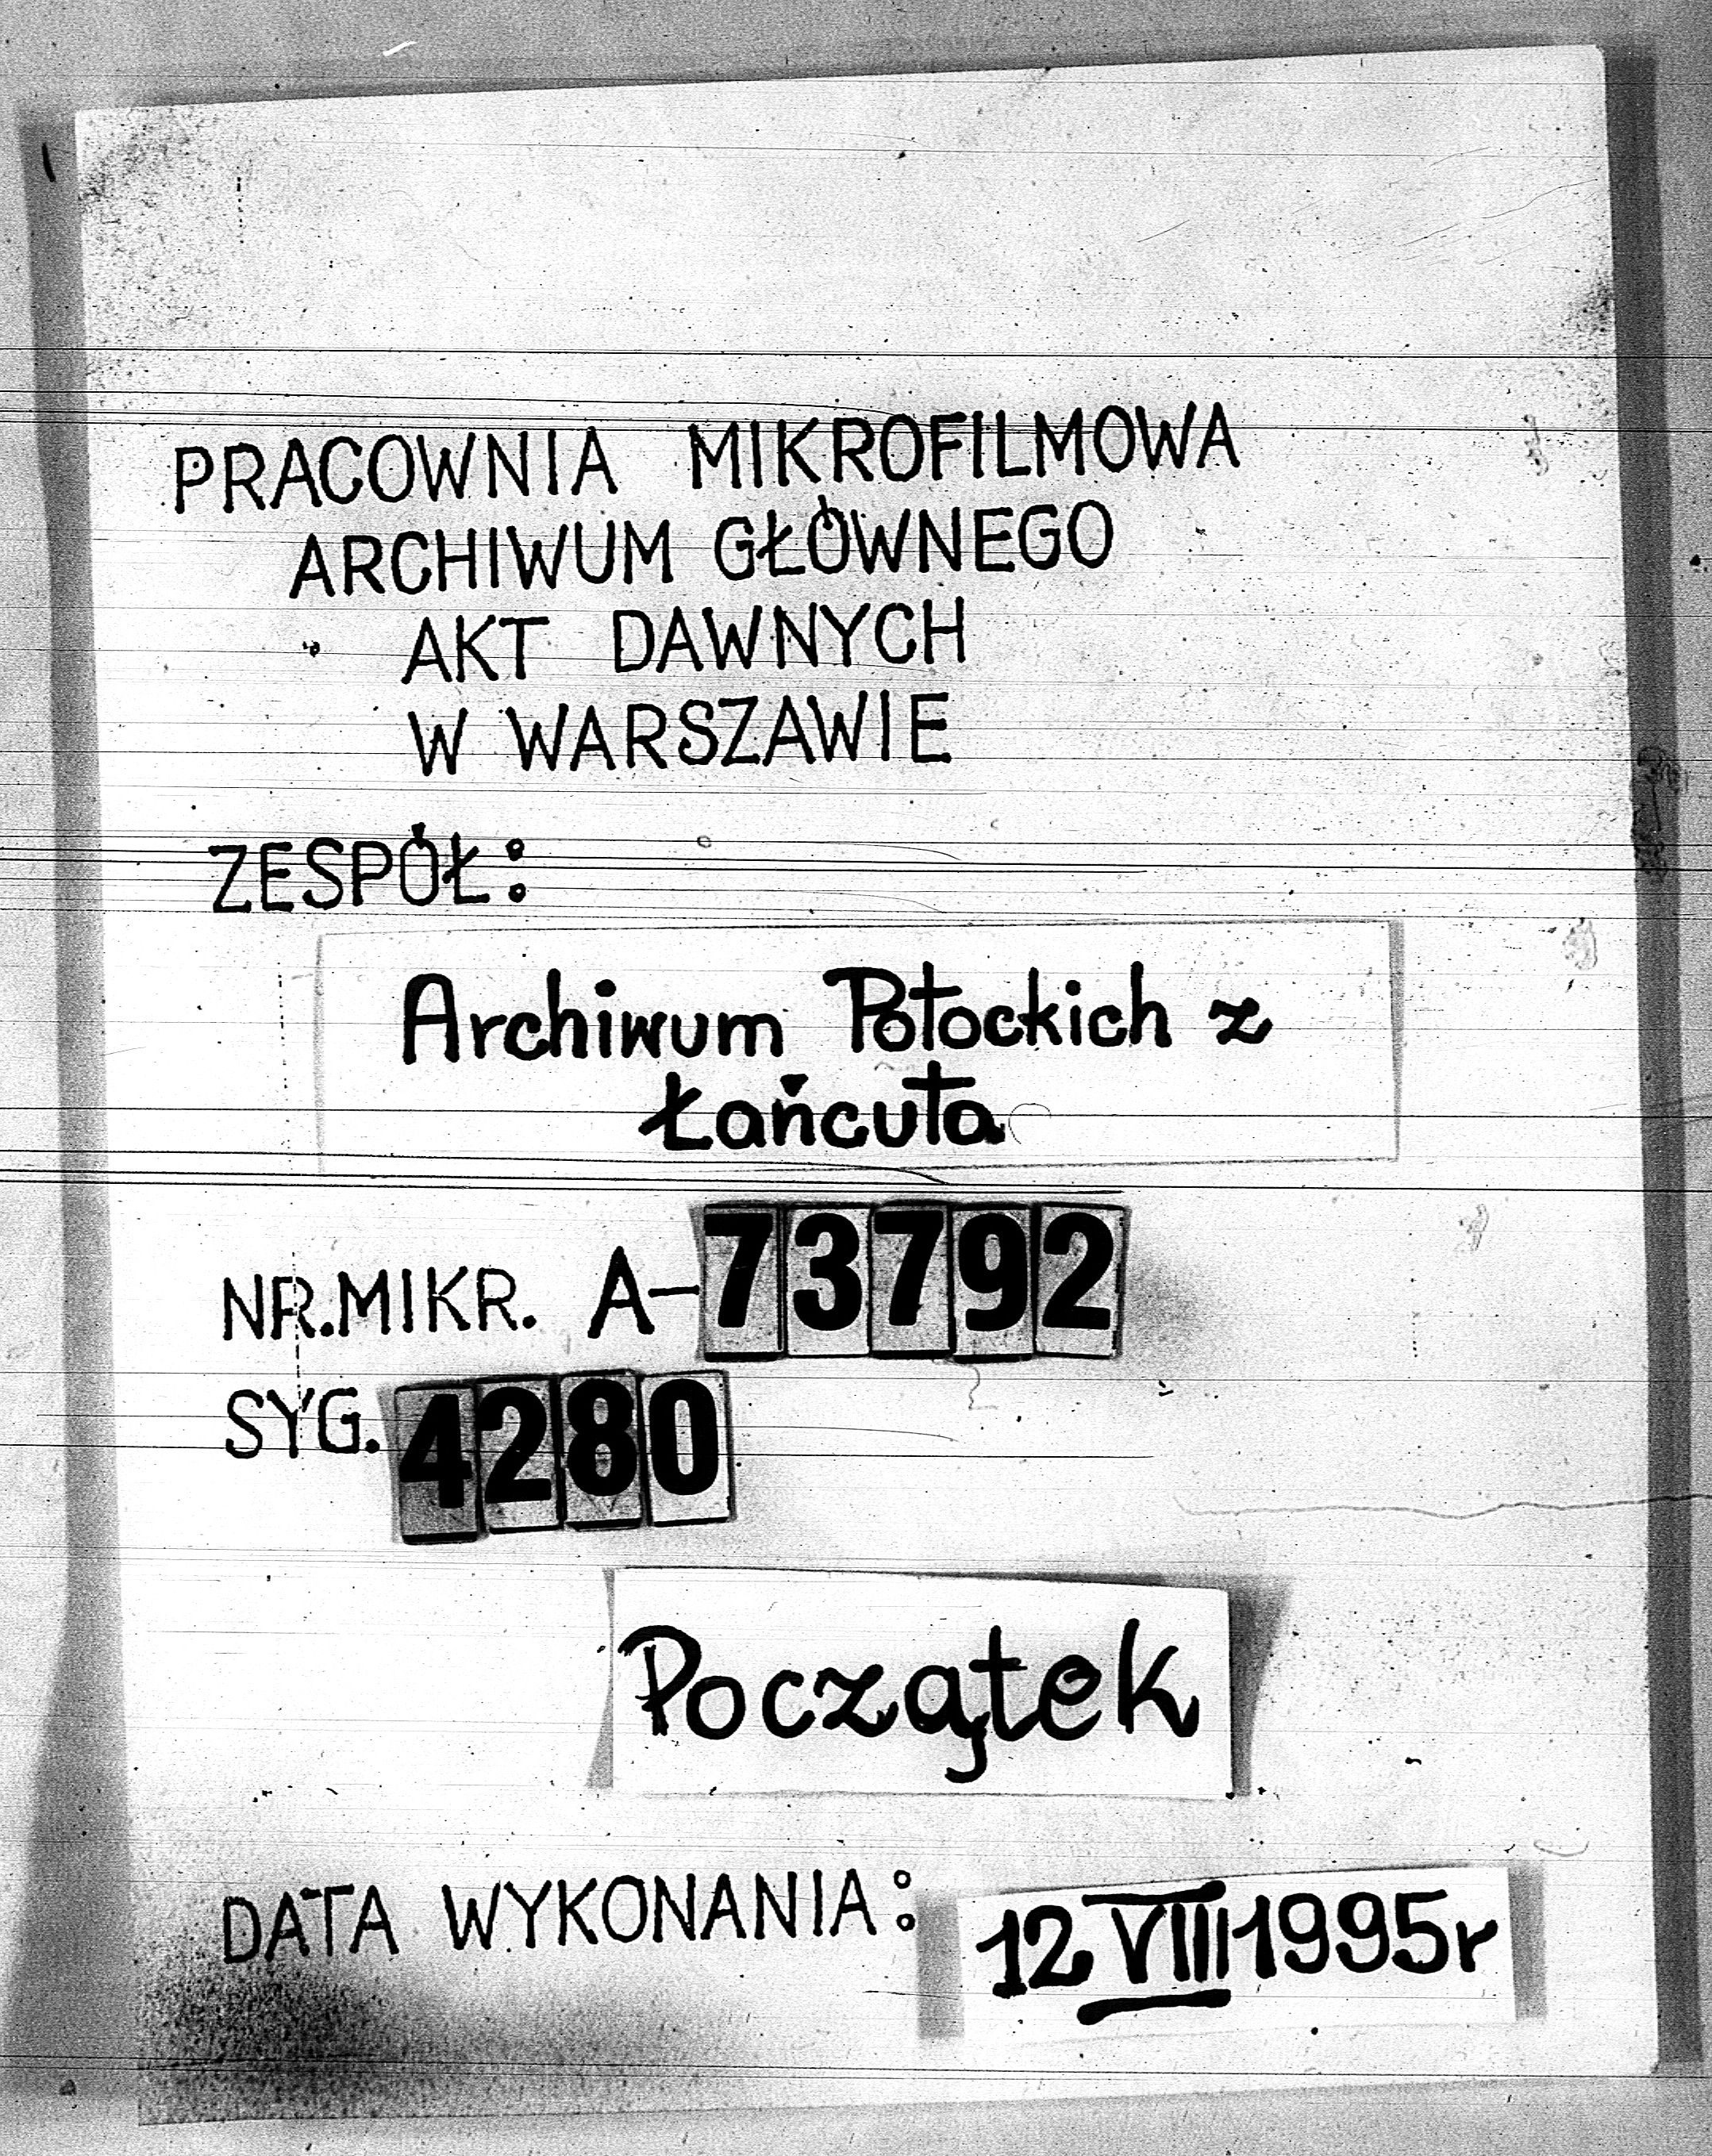 PRACOWNIA MIKROFILMOWA
ARCHIWUM GŁÓWNEGO
AKT DAWNYCH
W WARSZAWIE
ZESPÓŁ:
Archiwum Potockich z
Łańcuta
NR.MIKR. A-73792
SYG. 4280
Początek
DATA WYKONANIA: 12 VIII 1995r